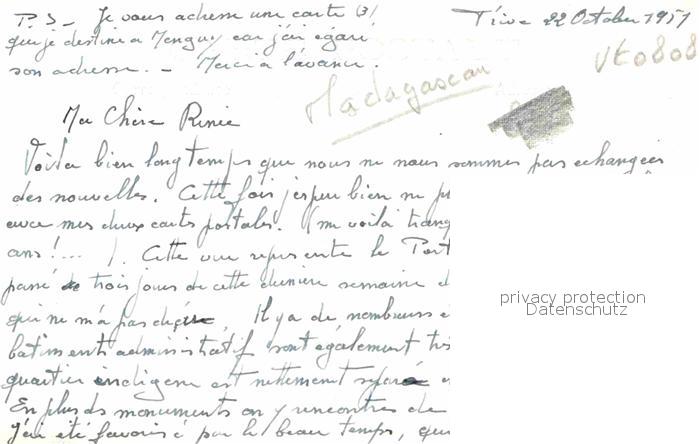 P.S - Je vous adresse une carte (3)
que je destine à Menguy car j'ai égaré
son adresse. - Merci à l'avance.
Tive 22 October 1951
Vto808
Madagascar
Ma Chère Renée
Voilà bien longtemps que nous ne nous sommes pas échangées
des nouvelles. Cette fois j'espère bien ne
avec mes deux cartes postales. (me voilà
ans!... ). Cette vue représente le Port
passé trois jours de cette dernière semaine
qui ne m'a pas Il y a de nombreux
bâtiments administratifs sont également
quartier indigène est nettement séparé
En plus des monuments on y rencontre de
j'ai été favorisé par le beau temps, que
privacy protection
Datenschutz